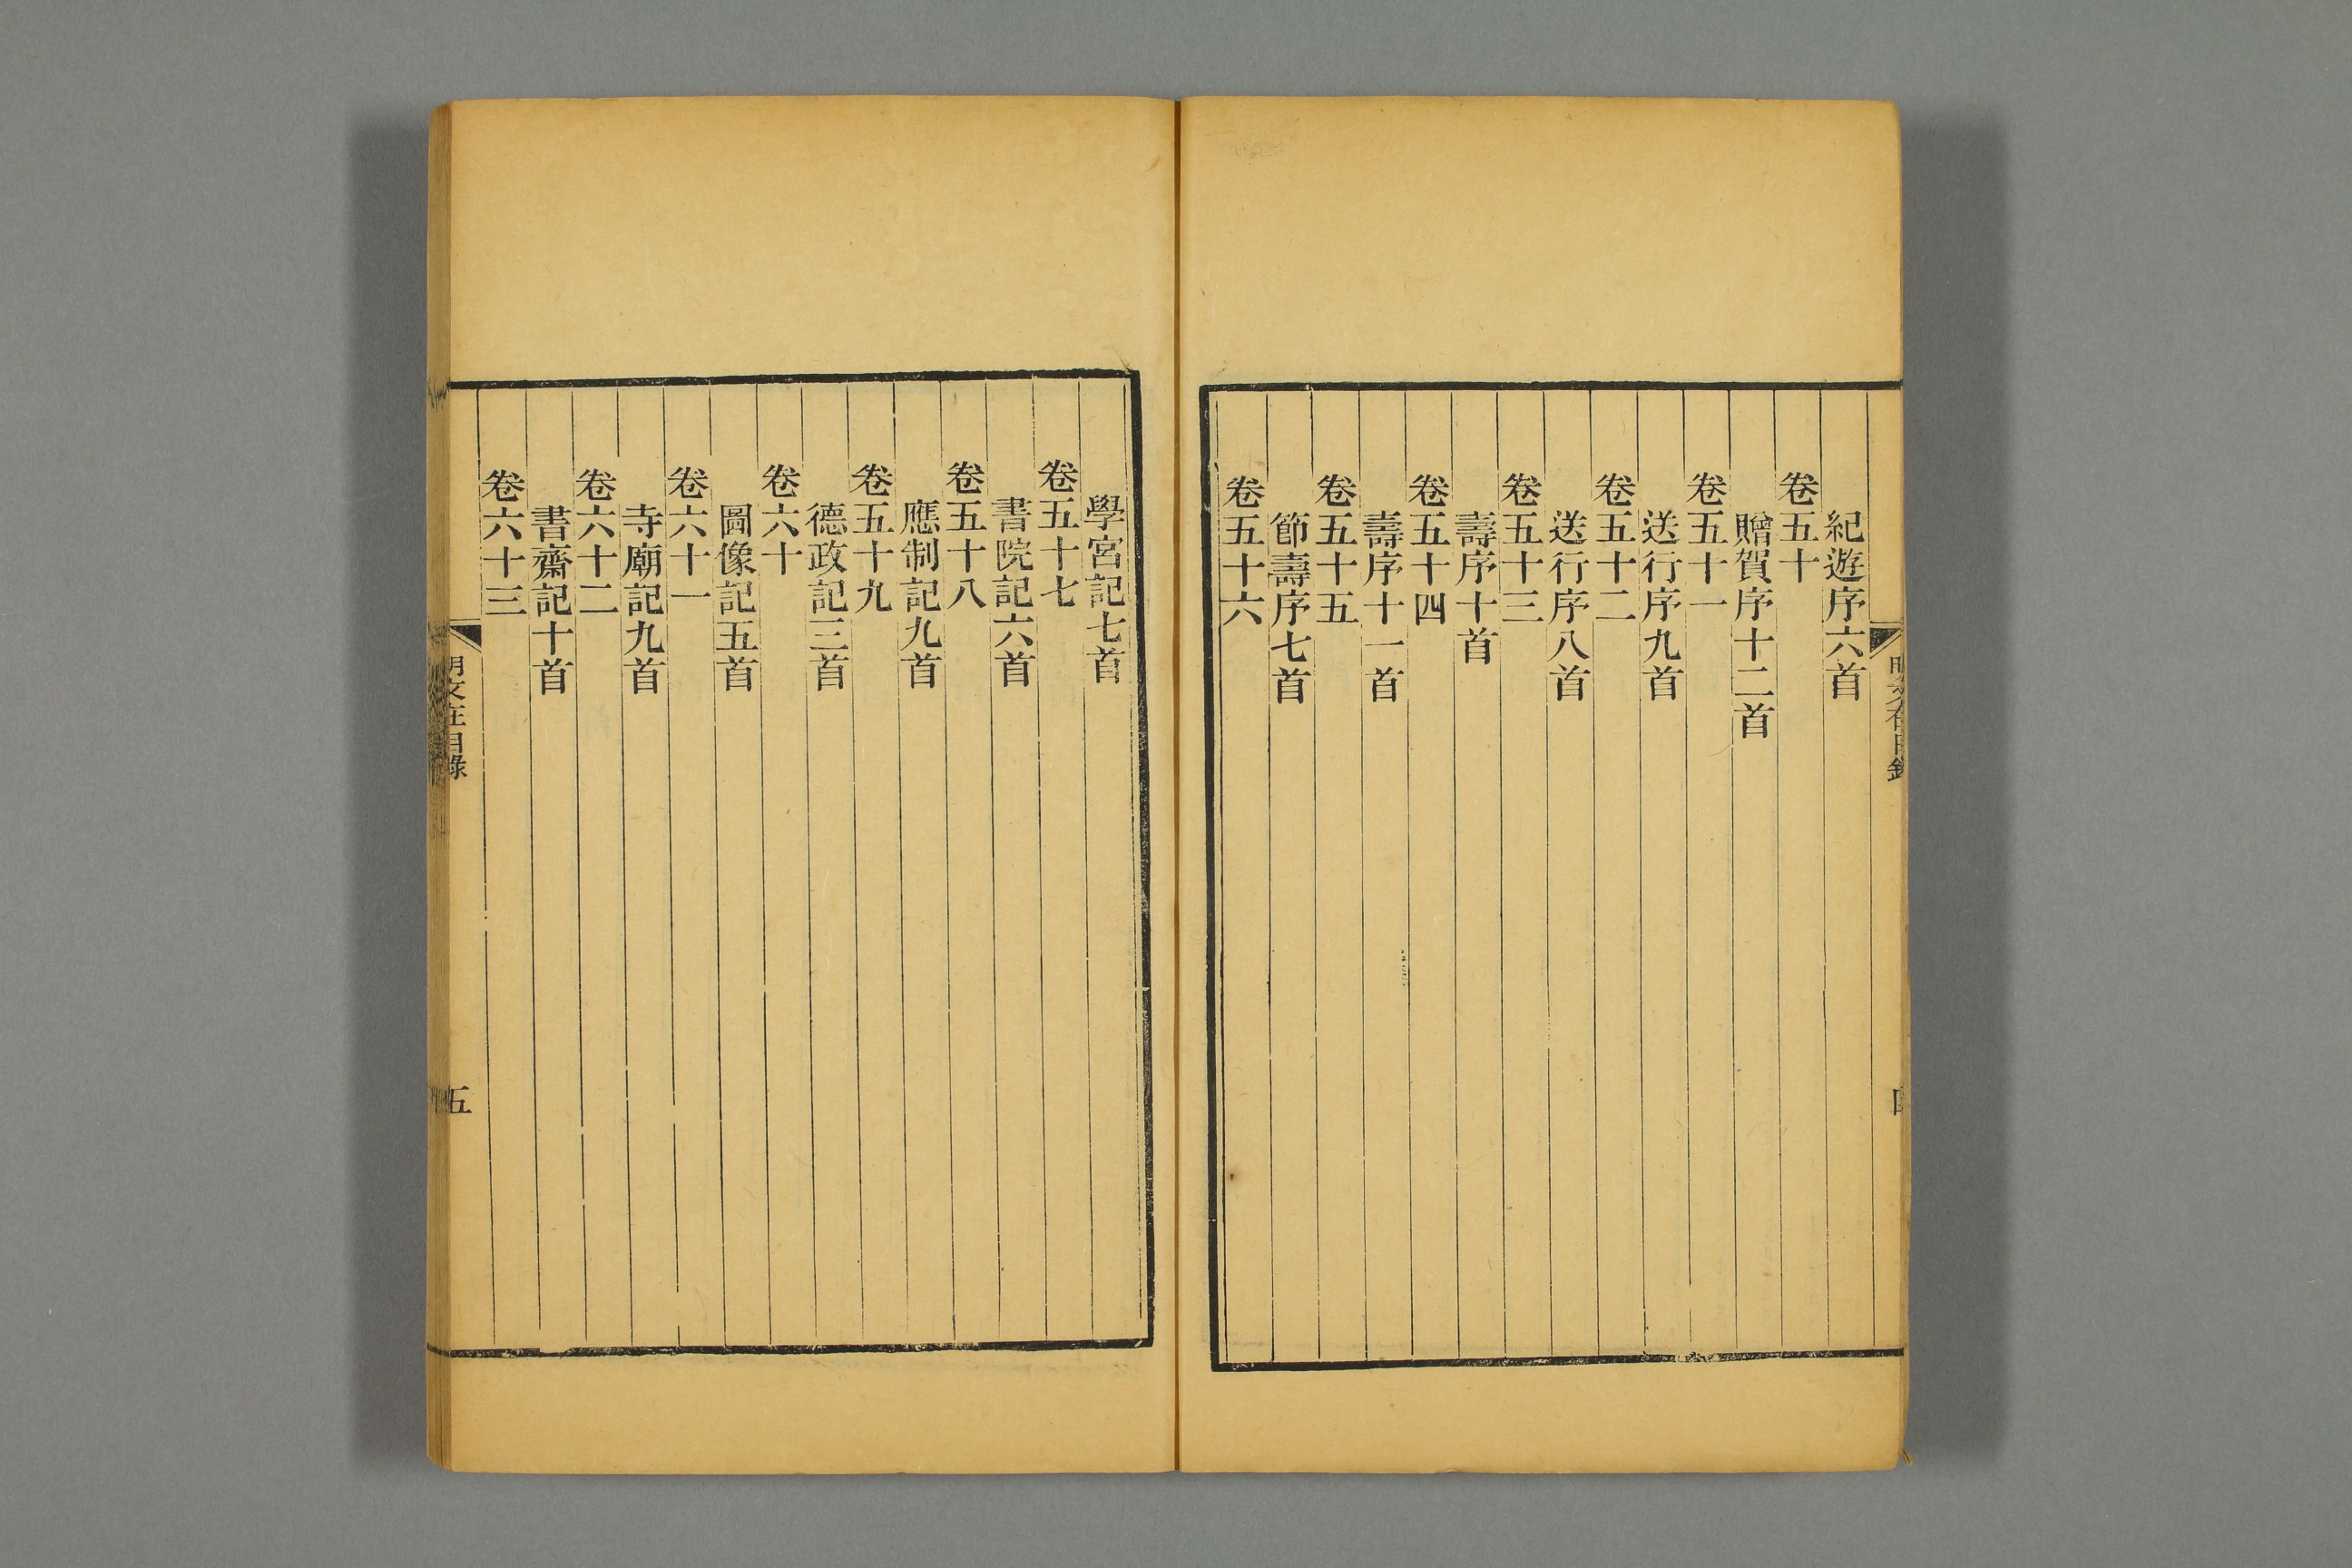 紀遊序六首
卷五十
贈賀序十二首
卷五十一
送行序九首
卷五十二
送行序八首
卷五十三
壽序十首
卷五十四
壽序十一首
卷五十五
節壽序七首
卷五十六
學宮記七首
卷五十七
書院記六首
卷五十八
應制記九首
卷五十九
德政記三首
卷六十
圖像記五首
卷六十一
寺廟記九首
卷六十二
書齋記十首
卷六十三
明文在目錄
五